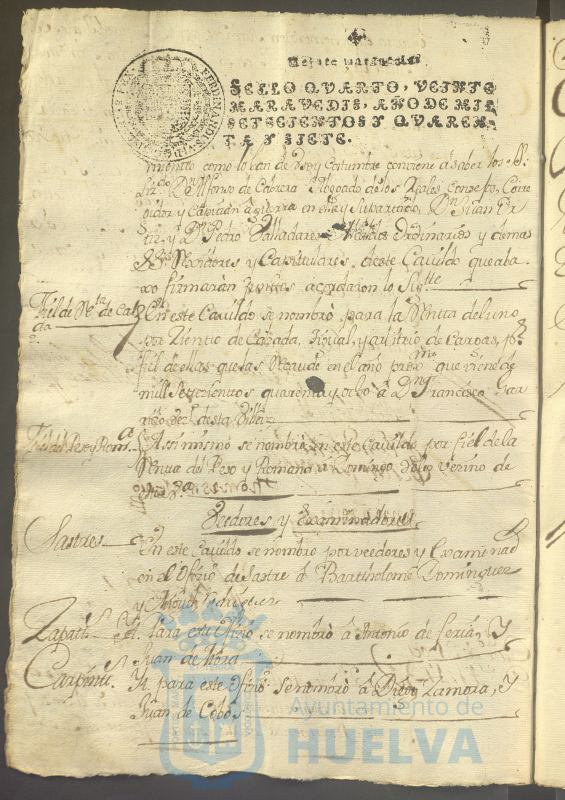 Veinte maravedis.
SELLO QVARTO, VEINTE
MARAVEDIS, AÑO DE MIL
SETECIENTOS Y QVAREN-
TA Y SIETE.
como lo han de Vso y Costumbre conviene a saber los
Dn Alfonso de Cabrera Abogado de los Reales Consejos, Corre
gidor y Capitan a guerra en esta y su partido, Dn Juan
y Dn Pedro Valladares Alcaldes Ordinarios y demas
Rexidores y Capitulares de este Cavildo que aba
xo firmarán juntos acordaron lo sigtte
Fiel de Rta de Cal
da
En este Cavildo se nombró para la Rentta del uno
por Ziento de y arbitrio de
fiel de ellas que las Recaude en el año que viene de
mill Settezientos quarenta y ocho â Dn Francisco
de esta Villa
Fiel del Pexo y Rom.a
Assi mismo se nombró en este Cavildo por fiel de la
Renta del Pexo y Romana a Domingo vezino de
esta Va.
Veedores y Examinadores
Sastres
En este Cavildo se nombro por veedores y Examinad
en el Ofizio de Sastre â Bartholomè Dominguez
y
Zapatt.s
Yt. Para este Ofizio se nombrò â Antonio de Feria, Y
Juan de Mora
Carpintt.s
Yt. para este Ofizio se nombrò â Diego Zamora, Y
Juan de Cobos
Ayuntamiento de
HUELVA